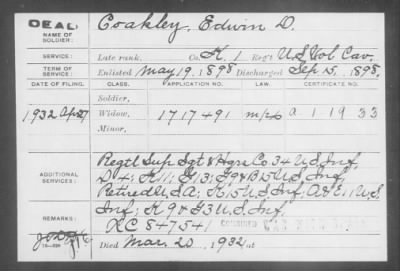 DEAD
NAME OF SOLDIER: Coakley, Edwin D.
SERVICE: Late rank, Co. K, 1 Reg't U.S. Vol Cav.
TERM OF SERVICE: Enlisted May 19, 1898 Discharged Sep 15, 1898.
DATE OF FILING. CLASS. APPLICATION NO. LAW. CERTIFICATE NO.
Soldier,
1932 Apr 27 Widow, 1717491 a-1-19-33
Minor,
ADDITIONAL SERVICES: Regtl Sup Sgt & Hqrs Co 34 U.S. Inf,
D 4; K 11; G 13; G 9 & B 15 U.S. Inf,
Retired U.S.A; K 15 U.S. Inf; A & E, 1 U.S.
Inf; K 9 & G 3 U.S. Inf,
REMARKS: XC 847541
Died Mar. 20, 1932, at